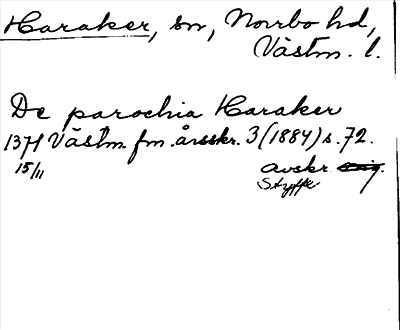 Haraker, sn, Norrbo hd,
Västm. l.
De parochia Haraker
1371 Västm. fm. årsskr. 3 (1884) s. 72.
15/11 avskr. orig.
Styffe